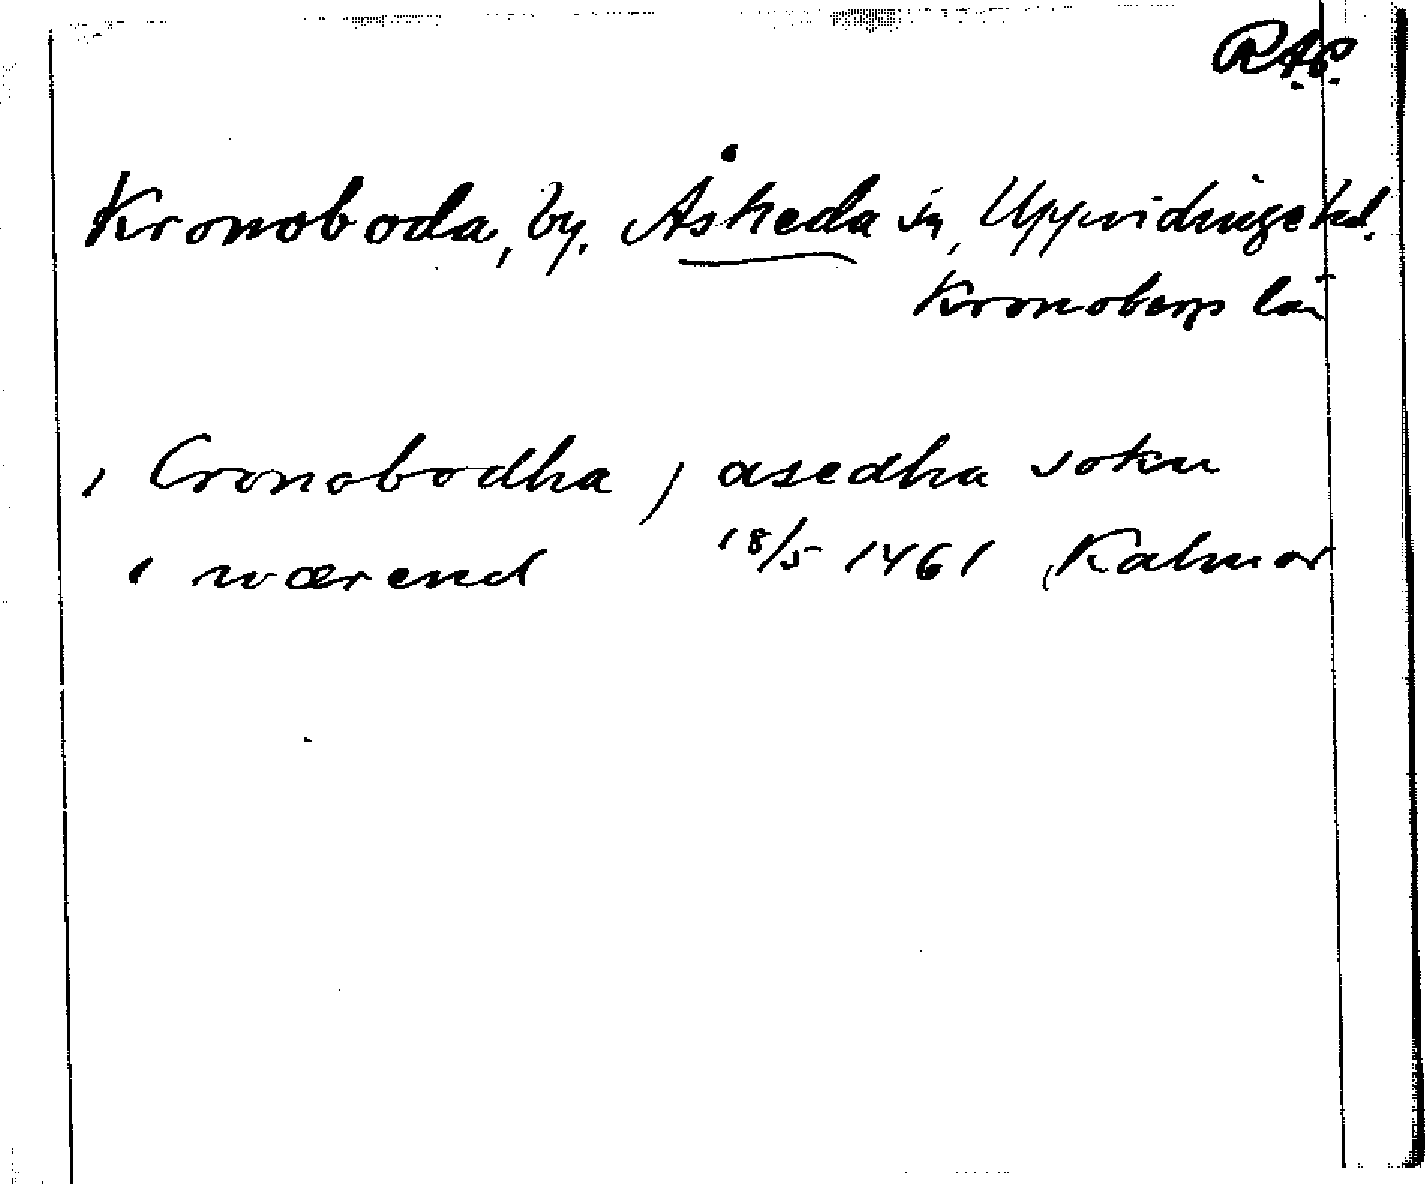 R.A.P.
Kronoboda, by. Åskeda sn, Uppvidinge hd.
Kronobergs län
i Cronobodha, i asedha sokn
i wærend 18/5 1461 Kalmar